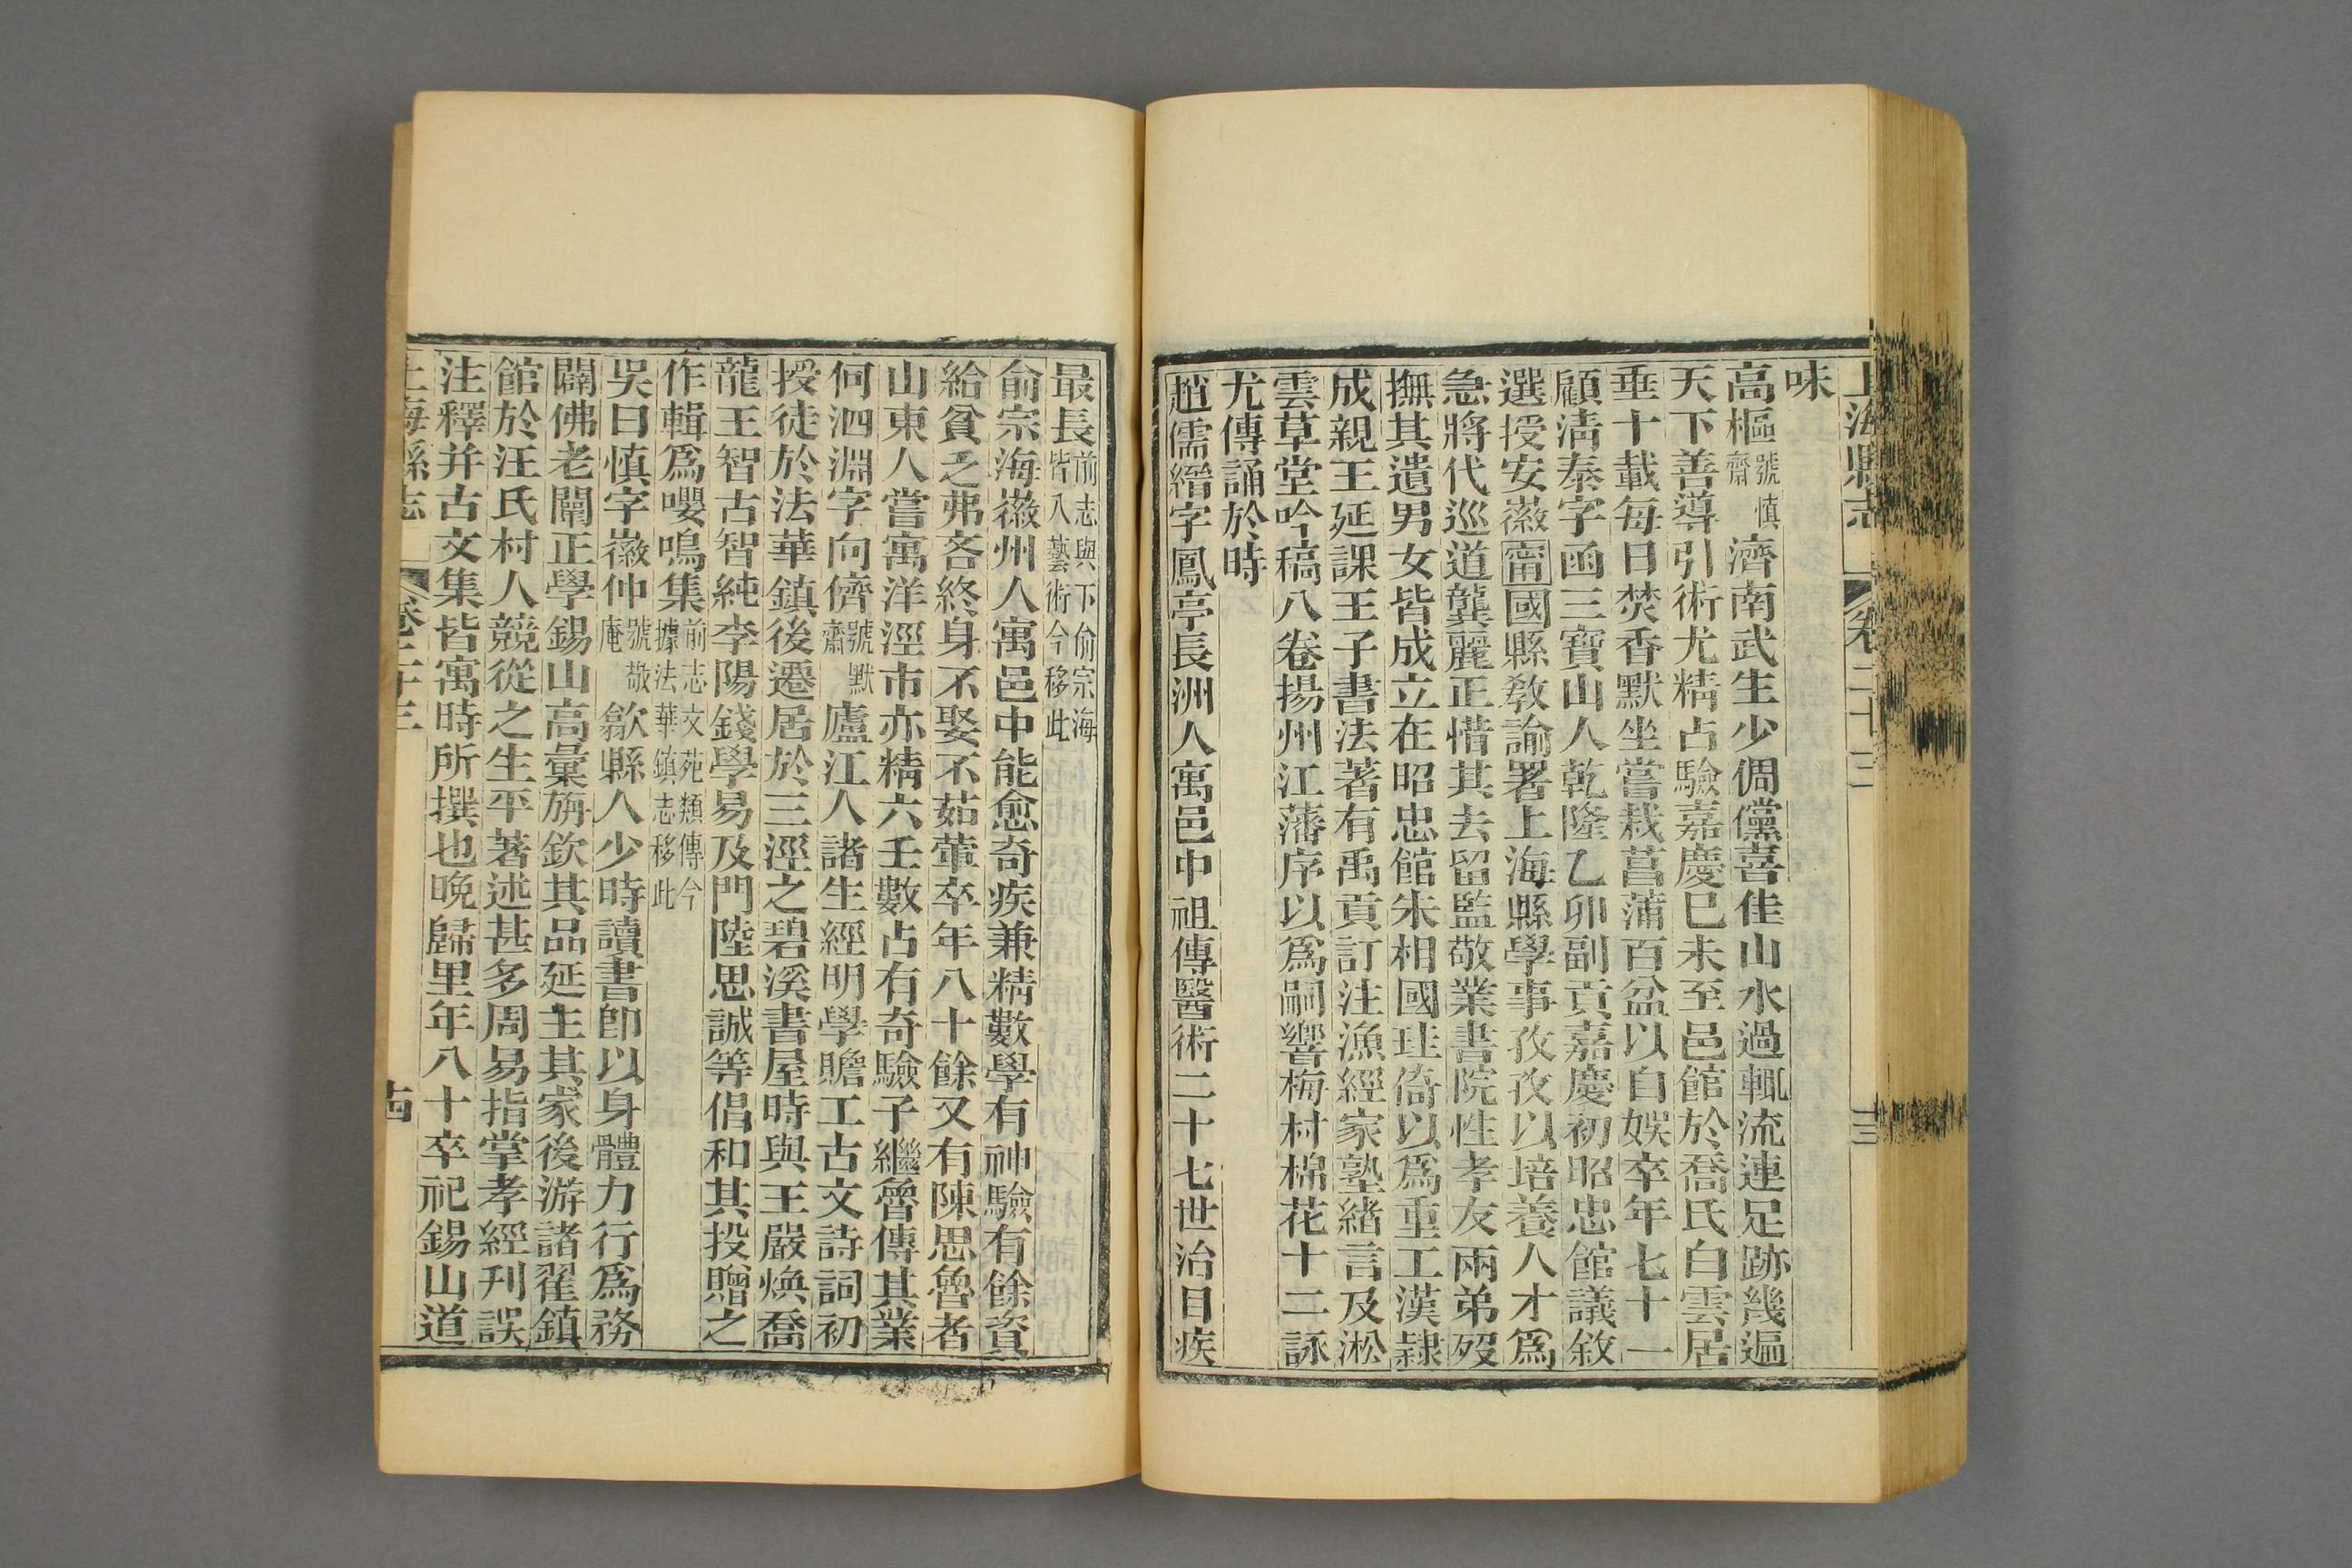 上海縣志 卷二十三 十三
味
高樞號慎齋濟南武生少倜儻喜佳山水過輒流連足跡幾遍
天下善導引術尤精占驗嘉慶已未至邑館於喬氏白雲居
垂十載每日焚香默坐嘗栽菖蒲百盆以自娛卒年七十一
顧淸泰字函三寶山人乾隆乙卯副貢嘉慶初昭忠館議敘
選授安徽甯國縣敎諭署上海縣學事孜孜以培養人才爲
急將代巡道龔麗正惜其去留監敬業書院性孝友兩弟歿
撫其遺男女皆成立在昭忠館朱相國珪倚以爲重工漢隷
成親王延課王子書法著有禹貢訂注漁經家塾緒言及淞
雲草堂吟稿八卷揚州江藩序以爲嗣響梅村棉花十二詠
尤傳誦於時
趙儒縉字鳳亭長洲人寓邑中祖傳醫術二十七世治目疾
最長前志與下俞宗海皆入藝術今移此
俞宗海徽州人寓邑中能愈奇疾兼精數學有神驗有餘資
給貧乏弗吝終身不娶不茹葷卒年八十餘又有陳思魯者
山東人嘗寓洋涇市亦精六壬數占有奇驗子繼魯傳其業
何泗淵字向儕號默齋廬江人諸生經明學贍工古文詩詞初
授徒於法華鎮後遷居於三涇之碧溪書屋時與王嚴煥喬
龍王智古智純李陽錢學易及門陸思誠等倡和其投贈之
作輯爲嚶鳴集前志文苑類傳今據法華鎮志移此
吳曰愼字徽仲號敬庵歙縣人少時讀書卽以身體力行爲務
闢佛老闡正學錫山高彙旃欽其品延主其家後游諸翟鎮
館於汪氏村人競從之生平著述甚多周易指掌孝經刊誤
注釋并古文集皆寓時所撰也晚歸里年八十卒祀錫山道
上海縣志 卷二十三 十四